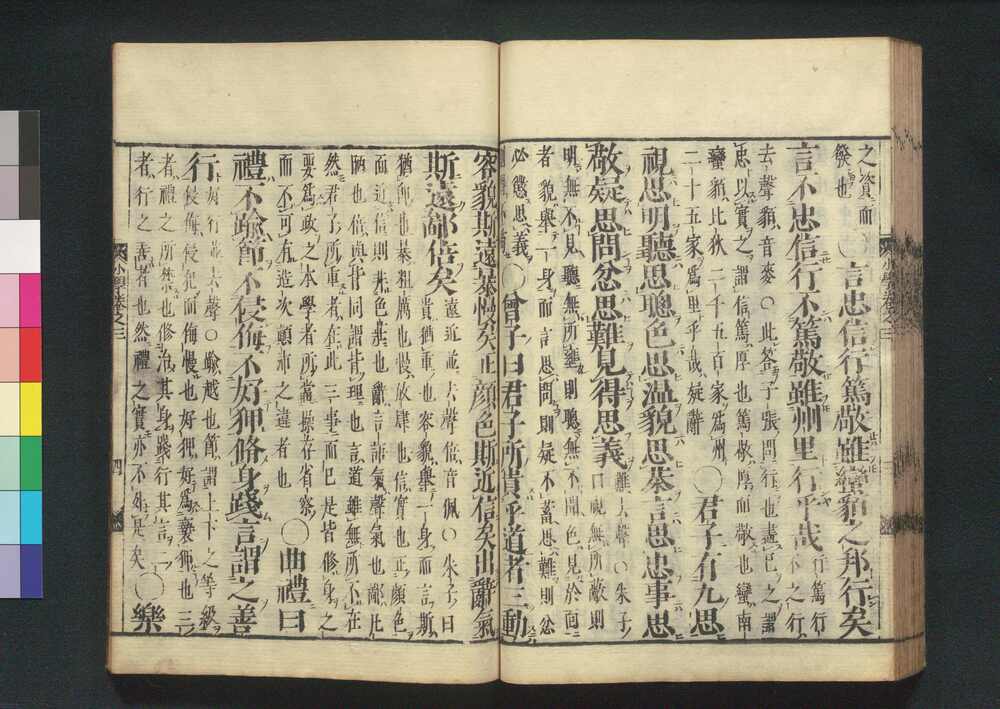 之資而
發也
○言忠信行篤敬雖蠻貊之邦行矣
言不忠信行不篤敬雖州里行乎哉
行篤行
不之行
去聲貊音麥○此答子張問行也盡己之謂
忠以實之謂信篤厚也篤敬厚而敬也蠻南
蠻貊北狄二千五百家爲州
二十五家爲里乎哉疑辭
○君子有九思
視思明聽思聰色思温貌思恭言思忠事思
敬疑思問忿思難見得思義
難去聲○朱子
曰視無所蔽則
明無不見聽無所壅則聰無不聞色見於面
者貌舉一身而言思問則疑不蓄思難則忿
必懲思義
○曾子曰君子所貴乎道者三動
小學卷之三
容貌斯遠暴慢矣正顏色斯近信矣出辭氣
斯遠鄙倍矣
遠近並去聲倍音佩○朱子曰
貴猶重也容貌舉一身而言斯
猶即也暴粗厲也慢放肆也信實也正顏色
而近信則非色莊也辭言語氣聲氣也鄙凡
陋也倍與背同謂背理也言道雖無所不在
然君子所重者在此三事而已是皆修身之
要爲政之本學者所當操存省察
而不可有造次顛沛之違者也
○曲禮曰
禮不踰節不侵侮不好狎脩身踐言謂之善
行
好行並去聲○踰越也節謂上下之等級
侵侮侵犯而侮慢也好狎好爲褻狎也三
者禮之所禁也修治其身踐行其言二
者行之善者也然禮之實亦不外是矣
○樂
小學卷之三
四